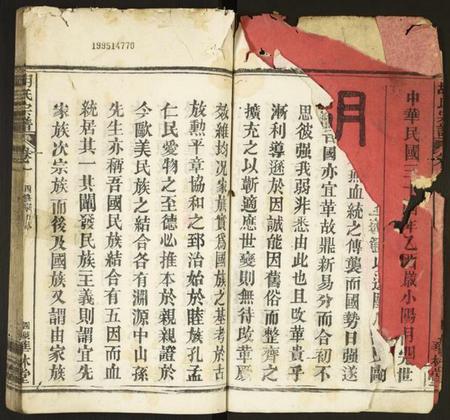 199514770
胡氏宗譜
中華民國三十四年乙酉歲小陽月
胡
無血統之傳襲而國勢日强遂
百國亦宜革故鼎新易分而合初不
思彼强我弱非悉由此也且改革貴乎
漸利導遜於因誠能因舊俗而整齊之
擴充之以蘄適應世變則無待改革慶
效維均况家族實爲國族之基考於古
放勲平章協和之郅治始於睦族孔孟
仁民愛物之至德必推本於親親證於
今歐美民族之結合各有淵源中山孫
先生亦稱吾國民族結合有五因而血
統居其一其闡發民族主義則謂宜先
家族次宗族而後及國族又謂由家族
胡氏宗譜
卷一